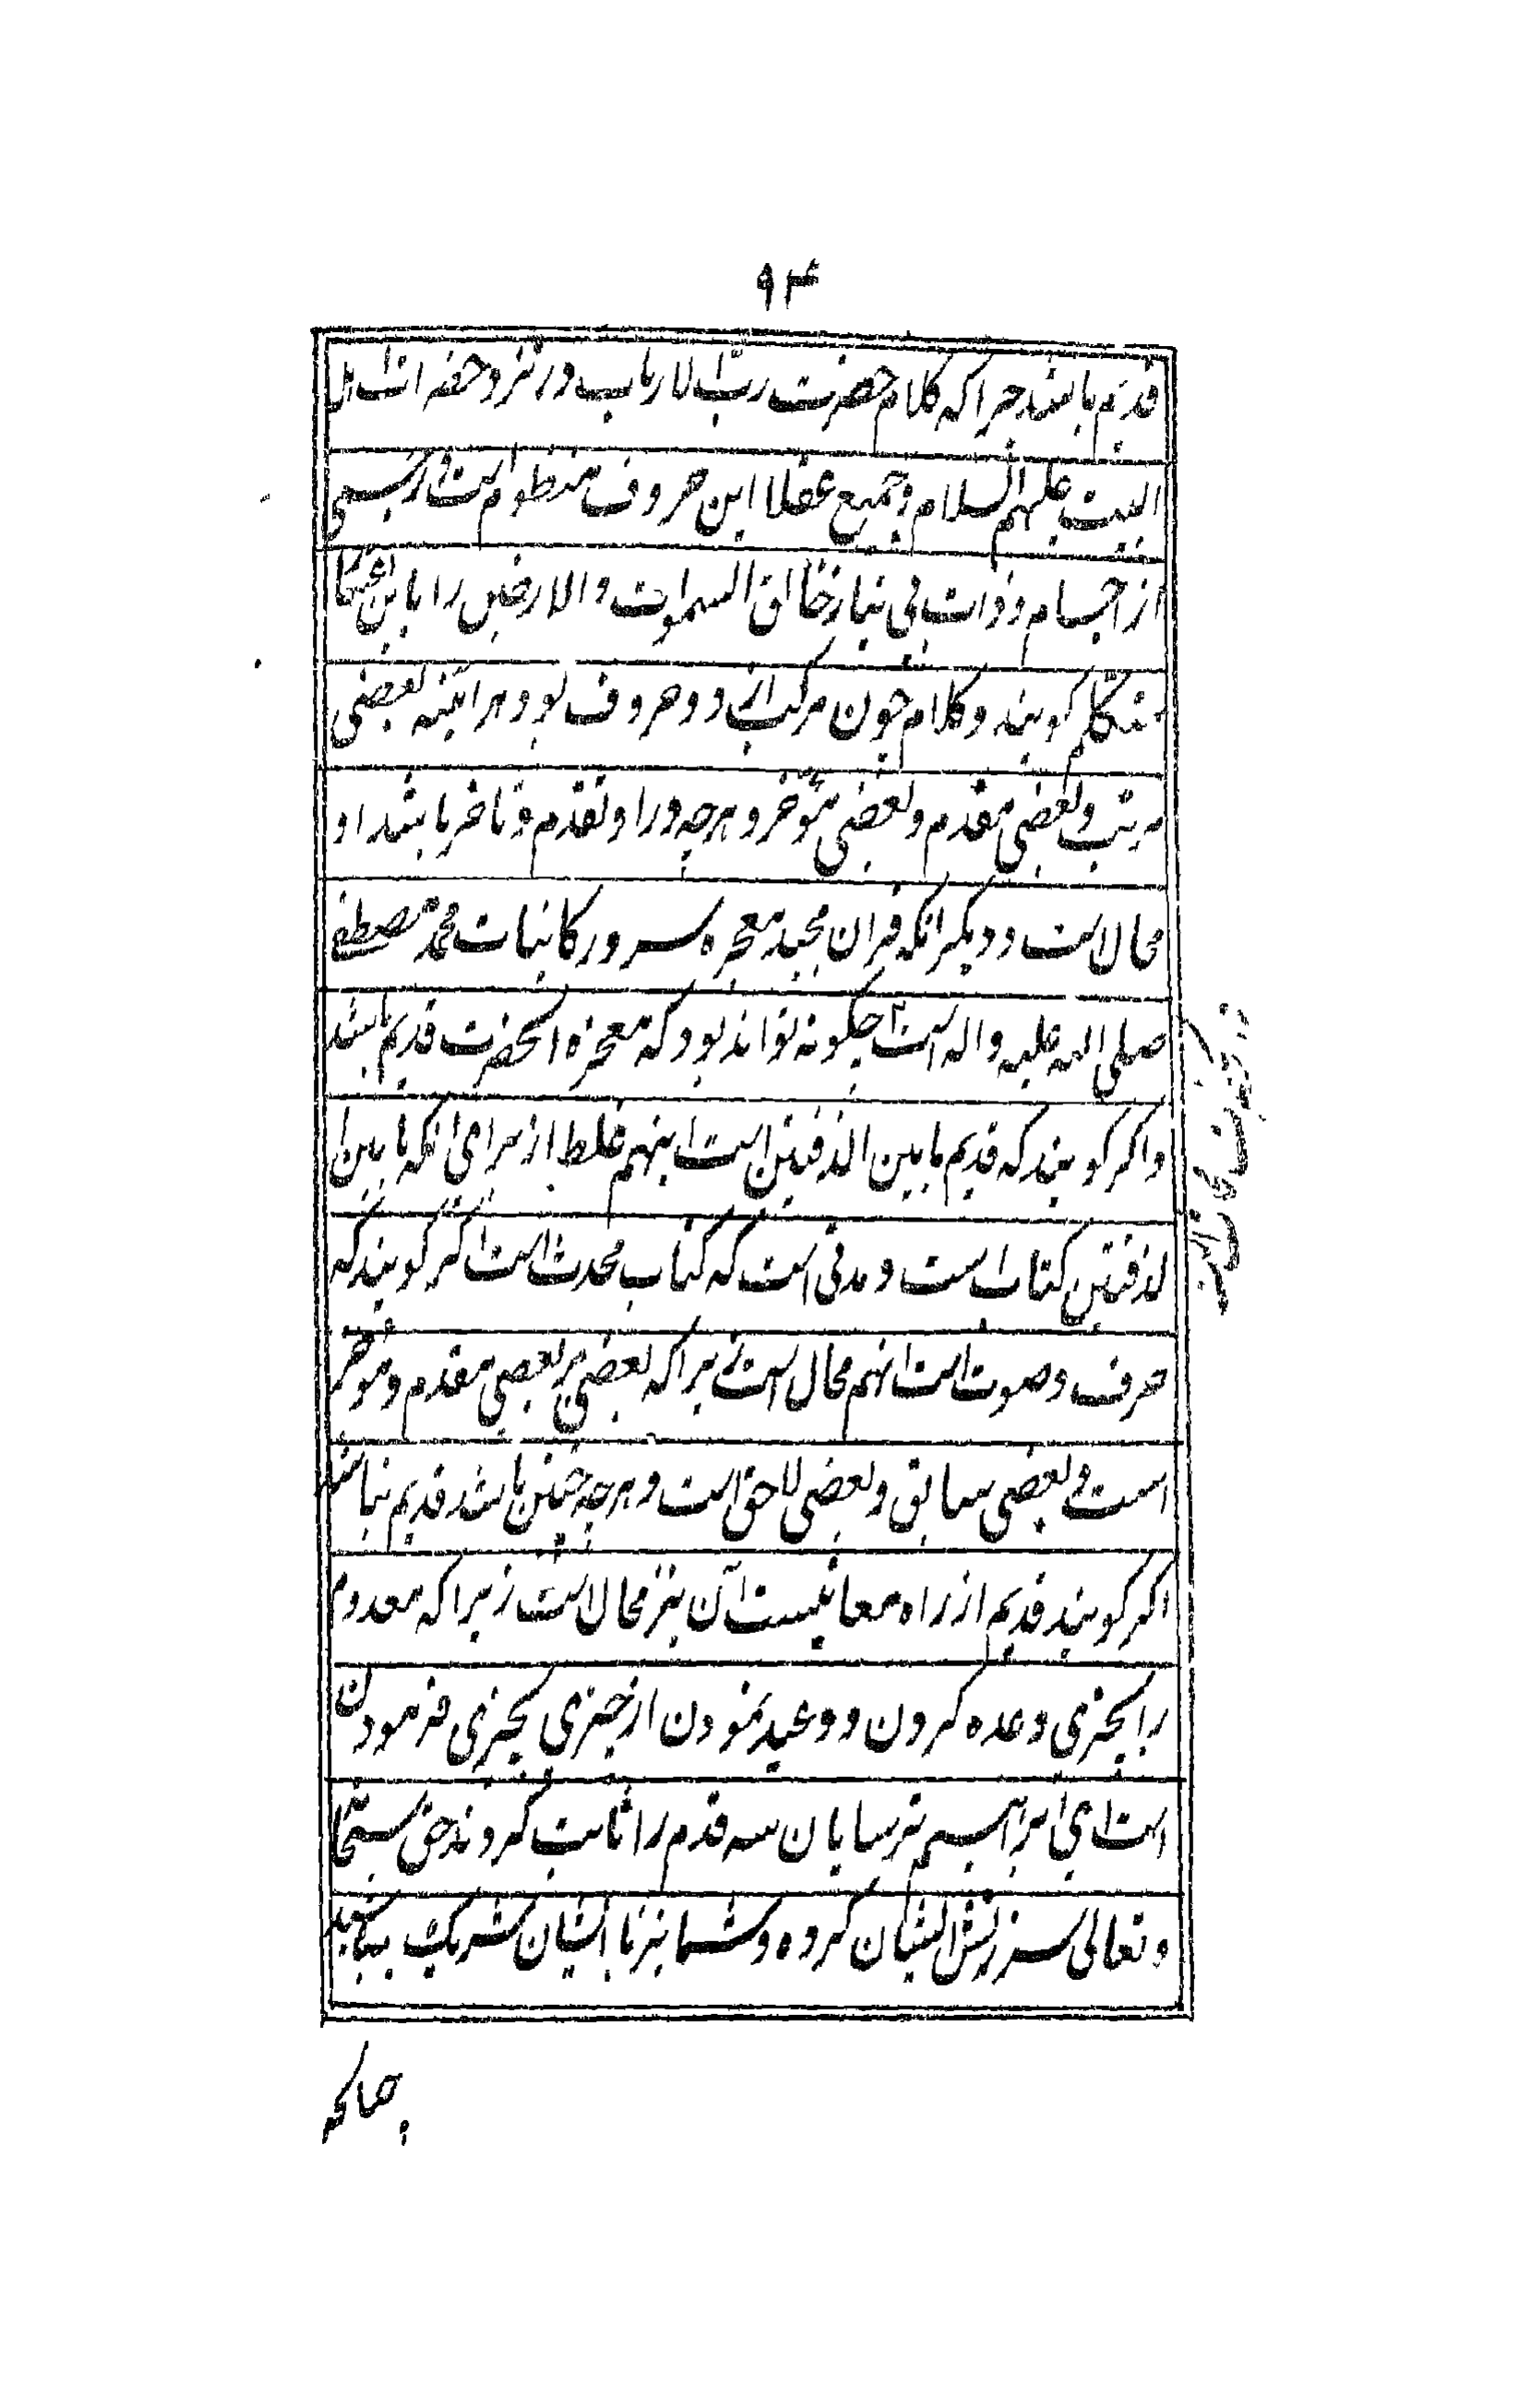 ۹۴
قدیم باشد چرا که کلام حضرت ربّ الارباب در نزد حقه اهل
البیت علیهم السلام و جمیع عقلا این حروف منظوم است
از اجسام و ذوات بی نیاز خالق السموات والارضین را باین
متکلم کویند و کلام چون مرکب از دو حروف بود هر اینه بعضی
مرتب و بعضی مقدم و بعضی مؤخر و هرچه در او تقدم و تاخر باشد او
محالاست و دیکر انکه قران مجید معجزه سرور کاینات محمد مصطفی
صلی الله علیه واله است چکونه تواند بود که معجزه انحضرت قدیم باشد
و اکر کویند که قدیم ما بین الدفتین است اینهم غلط از برای انکه ما بین
لدفتین کتاب است و مدنی است که کتاب محدث است اکر کویند که
حرف و صوت است انهم محال است زیراکه بعضی بر بعضی مقدم و موخر
است و بعضی سابق و بعضی لاحق است و هرچه چنین باشد قدیم نباشد
اکر کویند قدیم از راه معانیست آن نیز محالاست زیراکه معدوم
را بچیزی وعده کردن و وعید نمودن از چیزی بچیزی فرمودن
است ای ابراهیم ترسایان سه قدم را ثابت کردند حق سبحا
و تعالی سرزنش ایشان کرده و شما نیز با ایشان شریک میباشید
چنانکه